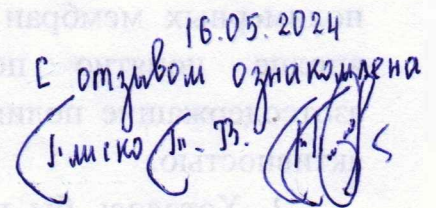 16.05.2024
С отзывом ознакомлена
Глиско Т. В.